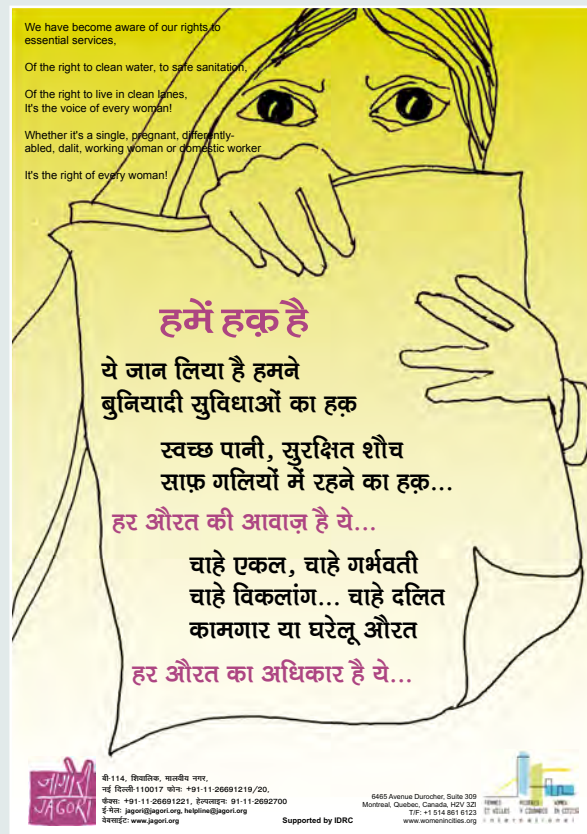 We have become aware of our rights to
essential services,
Of the right to clean water, to safe sanitation,
Of the right to live in clean lanes,
It's the voice of every woman!
Whether it's a single, pregnant, differently-
abled, dalit, working woman or domestic worker
It's the right of every woman!
हमें हक़ है
ये जान लिया है हमने
बुनियादी सुविधाओं का हक़
स्वच्छ पानी, सुरक्षित शौच
साफ़ गलियों में रहने का हक़...
हर औरत की आवाज़ है ये...
चाहे एकल, चाहे गर्भवती
चाहे विकलांग... चाहे दलित
कामगार या घरेलू औरत
हर औरत का अधिकार है ये...
जागोरी
JAGORI
बी-114, शिवालिक, मालवीय नगर,
नई दिल्ली-110017 फोनः +91-11-26691219/20,
फैक्सः +91-11-26691221, हेल्पलाइनः 91-11-2692700
ई-मेलः jagori@jagori.org, helpline@jagori.org
वेबसाईटः www.jagori.org
Supported by IDRC
6465 Avenue Durocher, Suite 309
Montreal, Quebec, Canada, H2V 3Z1
T/F: +1 514 861 6123
www.womenincities.org
FEMMES MUJERES WOMEN
ET VILLES Y CIUDADES IN CITIES
international